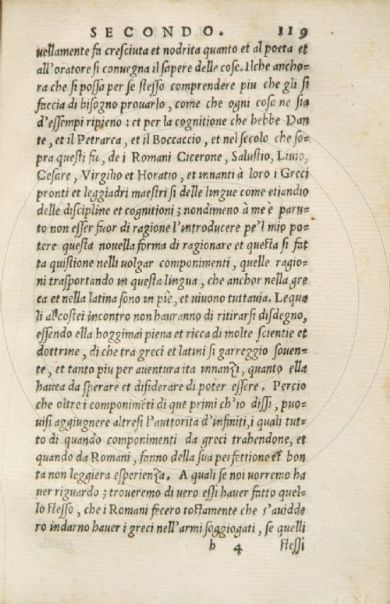 SECONDO. 119
uellamente fu cresciuta et nodrita quanto et al poeta et
all'oratore si conuegna il sapere delle cose. Ilche ancho-
ra che si possa per se stesso comprendere piu che gli si
faccia di bisogno prouarlo, come che ogni cosa ne sia
d'essempi ripieno: et per la cognitione che hebbe Dan
te, et il Petrarca, et il Boccaccio, et nel secolo che so-
pra questi fu, de i Romani Cicerone, Salustio, Liuio,
Cesare, Virgilio et Horatio, et innanti à loro i Greci
pronti et leggiadri maestri si delle lingue come etiandio
delle discipline et cognitioni; nondimeno à me è paru-
to non esser fuor di ragione l'introducere pe'l mio po-
tere questa nouella forma di ragionare et questa si fat
ta quistione nelli uolgar componimenti, quelle ragio-
ni trasportando in questa lingua, che anchor nella gre
ca et nella latina sono in piè, et uiuono tuttauia. Lequa
li al costei incontro non hauranno di ritirarsi disdegno,
essendo ella hoggimai piena et ricca di molte scientie et
dottrine, di che tra greci et latini si garreggio souen-
te, et tanto piu per auentura ita innanzi, quanto ella
hauea da sperare et disiderare di poter essere. Percio
che oltre i componimēti di que primi ch'io dissi, puo-
uisi aggiugnere altresi l'auttorita d'infiniti, i quali tut-
to di quando componimenti da greci trahendone, et
quando da Romani, fanno della sua perfettione et bon
ta non leggiera esperienza. A quali se noi uorremo ha
uer riguardo; troueremo di uero essi hauer fatto quel-
lo stesso, che i Romani fecero tostamente che s'auidde
ro indarno hauer i greci nell'armi soggiogati, se quelli
h 4 stessi